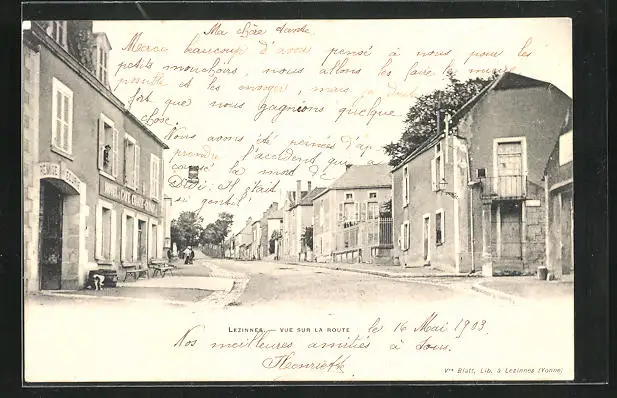 Ma chère tante.
Merci beaucoup d'avoir pensé à nous pour les
petits mouchoirs, nous allons les faire
et les envoyer, mais
fort que nous gagnions quelque
chose.
Nous avons été peinés d'ap
prendre l'accident qui a
causé la mort d
Didi. Il était
si gentil.
REMISE
HOTEL
LEZINNES — VUE SUR LA ROUTE
le 16 Mai 1903
Nos meilleures amitiés à tous.
Henriette
Vve Blatt, Lib. à Lezinnes (Yonne)